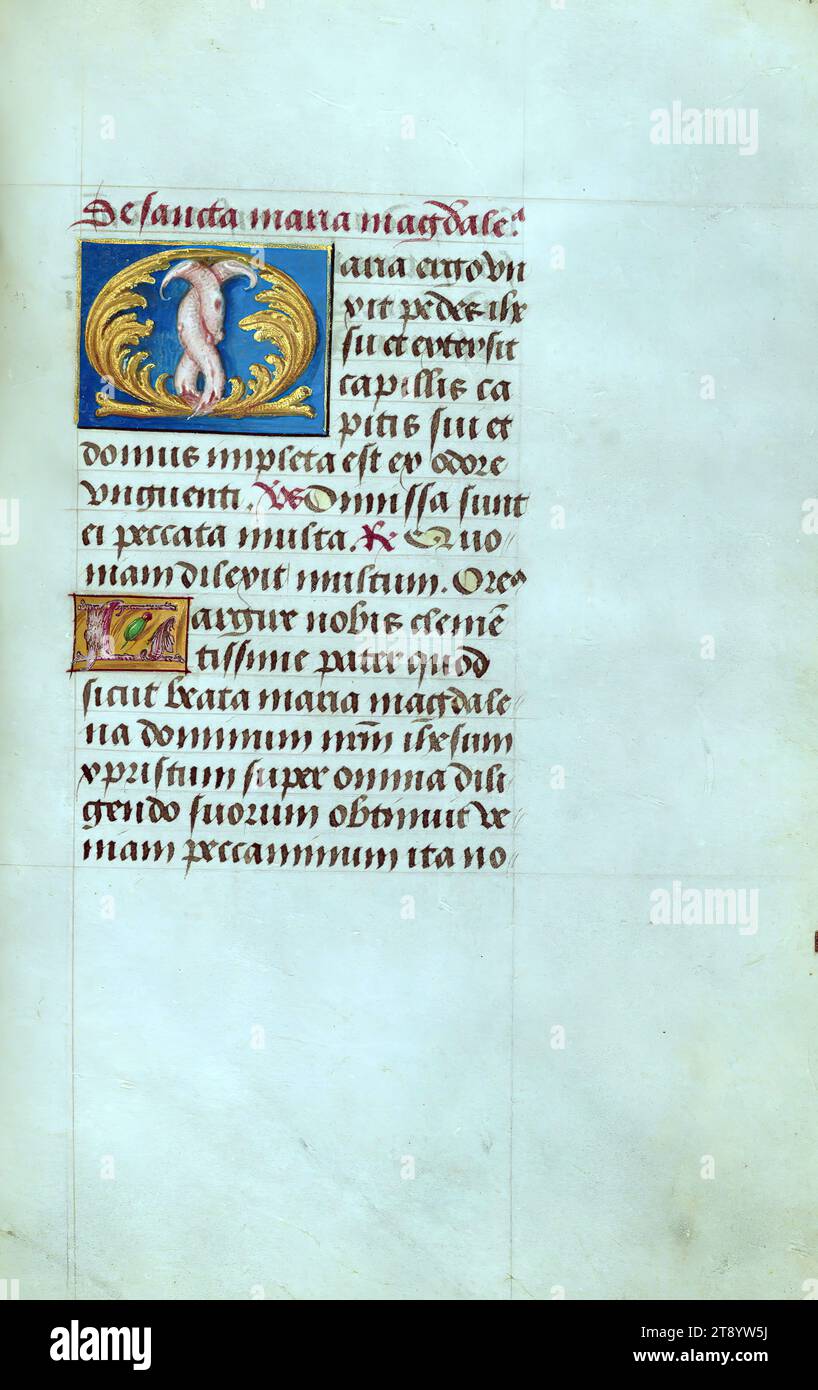 De sancta maria magdale.a
Maria ergo vn
xit pedes ihe
su et extersit
capillis ca
pitis sui et
domus impleta est ex odore
vnguenti. Vs Dimissa sunt
ei peccata multa. Re Quo
niam dilexit multum. Oreo
Largire nobis clemē
tissime pater quod
sicut beata maria magdale
na dominum nrm ihesum
xpristum super omnia dili
gendo suorum obtinuit ve
niam peccaminum ita no
alamy
a
alamy
a
alamy
alamy
Image ID: 2T8YW5J
www.alamy.com